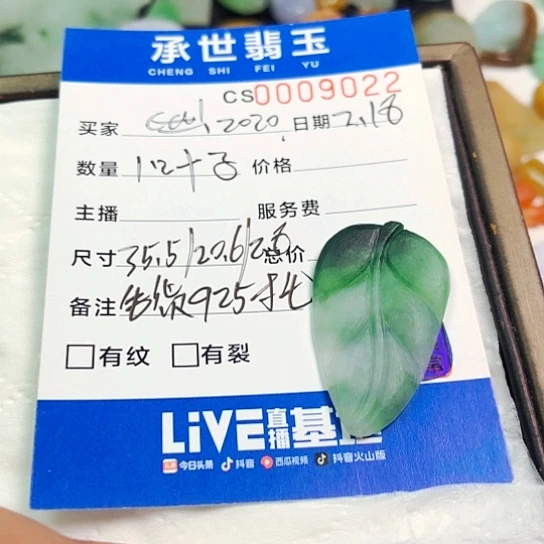 承世翡玉
CHENG SHI FEI YU
CS0009022
买家 2020 日期 2.18
数量 价格
主播 服务费
尺寸 35.5/20.6/2.8 总价
备注 925
有纹 有裂
LiVE 直播 基
今日头条 抖音 西瓜视频 抖音火山版